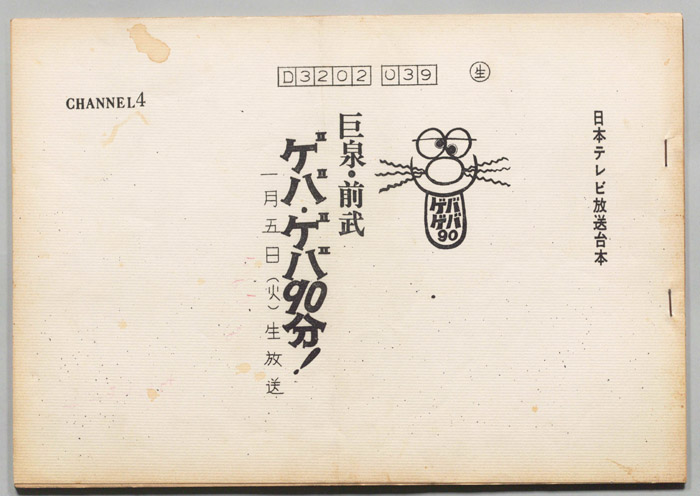 D3202 039 生
CHANNEL4
日本テレビ放送台本
巨泉・前武
ゲバ・ゲバ90分!
一月五日(火)生放送
ゲバ
ゲバ
90